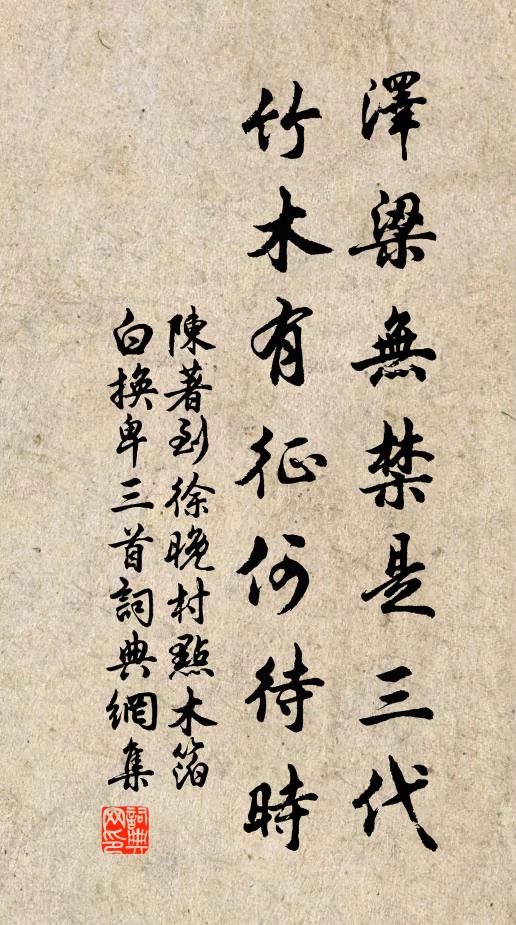 澤梁無禁是三代
竹木有征何待時
陳著到徐晚村點木箔
白換卑三首詞典網集
詞典
网印